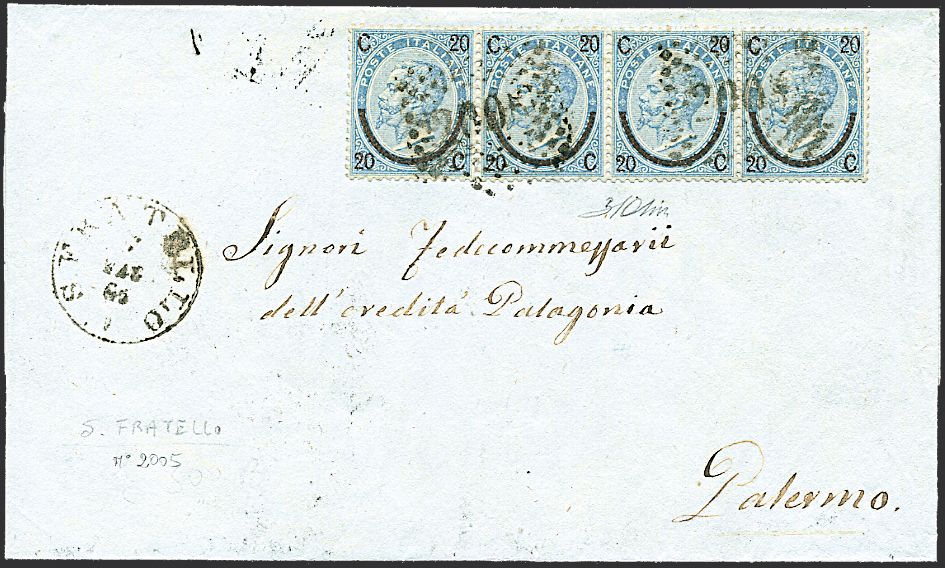 C 20 C 20 C 20 C 20
POSTE ITALIANE POSTE ITALIANE POSTE ITALIANE POSTE ITALIANE
20 C 20 C 20 C 20 C
S. FRATELLO
Signori Fedecommessarii
dell'eredità Palagonia
S. FRATELLO
n° 2005
Palermo.